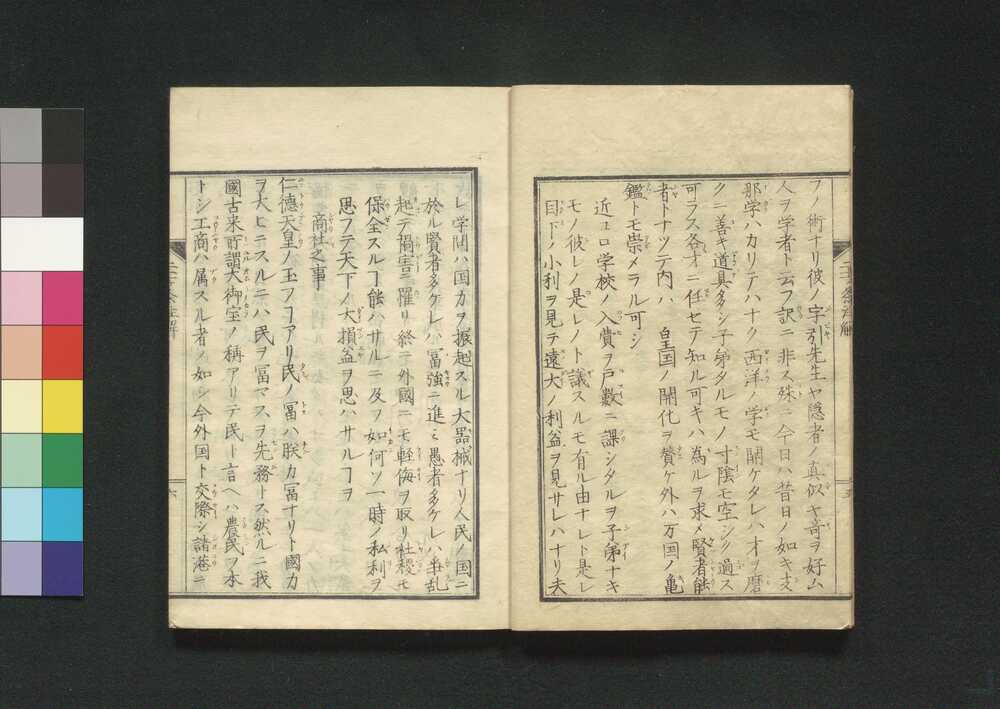 フノ術ナリ彼ノ字引先生ヤ隠者ノ真似ヤ奇ヲ好ム
人ヲ学者ト云フ訳ニ非ス殊ニ今日ハ昔日ノ如キ支
那学ハカリテハナク西洋ノ学モ開ケタレハ才ヲ磨
クニ善キ道具多シ子弟タルモノ寸陰モ空シク過ス
可ラス各才ニ任セテ知ル可キハ為ルヲ求メ賢者能
者トナツテ内ハ 皇国ノ開化ヲ賛ケ外ハ万国ノ亀
鑑トモ崇メラル可シ
近コロ学校ノ入費ヲ戸数ニ課シタルヲ子弟ナキ
モノ彼レノ是レノト議スルモ有ル由ナレト是レ
目下ノ小利ヲ見テ遠大ノ利益ヲ見サレハナリ夫
レ学問ハ国力ヲ振起スル大器械ナリ人民ノ国ニ
於ル賢者多ケレハ冨強ニ進ミ愚者多ケレハ争乱
起テ禍害ニ罹リ終ニ外國ニモ軽侮ヲ取リ社稷モ
保全スルヿ能ハサルニ及ヲ如何ソ一時ノ私利ヲ
思フテ天下ノ大損益ヲ思ハサルヿヲ
商社之事
仁徳天皇ノ玉フヿアリ民ノ冨ハ朕カ冨ナリト國カ
ヲ大ヒニスルニハ民ヲ冨マスヲ先務トス然ルニ我
國古来所謂大御宝ノ稱アリテ民ト言ヘハ農民ヲ本
トシ工商ハ属スル者ノ如シ今外国ト交際シ諸港ニ